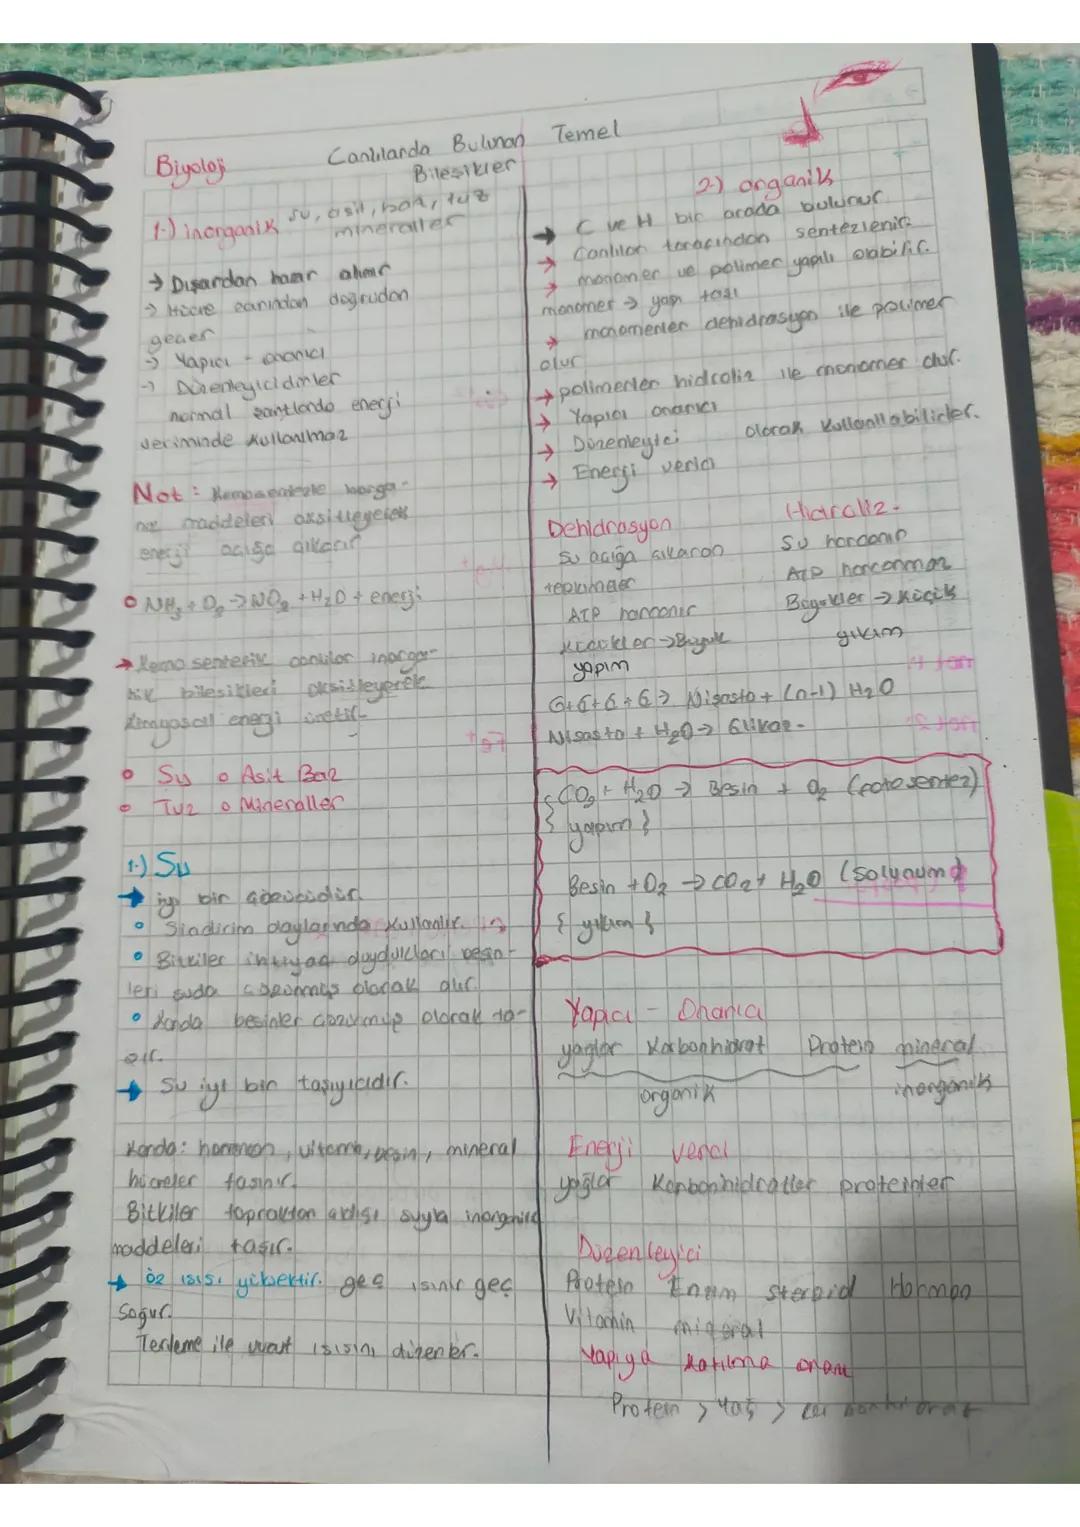 Biyoloji
Canlılarda Bulunan Temel
Bileşikler
1-) inorganik su, asit, baz, tuz
mineraller
→ Dışarıdan hazır alınır
→ Hücre zarından doğrudan
geçer
→ Yapıcı - onarıcı
→ Düzenleyicidirler
normal şartlarda enerji
veriminde kullanılmaz
Not: Kemosentezle inorga-
nik maddeleri oksitleyerek
enerji açığa çıkarır
NH3 + O2 → NO2 + H2O + enerji
→ Kemosentetik canlılar inorga-
nik bileşikleri oksitleyerek
kimyasal enerji üretir
Su Asit Baz
Tuz Mineraller
1-) Su
→ iyi bir çözücüdür.
Sindirim olaylarında kullanılır.
Bitkiler ihtiyaç duydukları besin-
leri suda çözünmüş olarak alır.
Kanda besinler çözünmüş olarak ta-
şır.
→ Su iyi bir taşıyıcıdır.
Kanda: hormon, vitamin, besin, mineral
hücreler taşınır.
Bitkiler topraktan aldığı suyla inorganik
maddeleri taşır.
→ Öz ısısı yüksektir. geç ısınır geç
soğur.
Terleme ile vücut ısısını düzenler.
2-) organik
→ C ve H bir arada bulunur
→ Canlılar tarafından sentezlenir.
→ monomer ve polimer yapılı olabilir.
monomer → yapı taşı
→ monomerler dehidrasyon ile polimer
olur
→ polimerler hidroliz ile monomer olur.
→ Yapıcı onarıcı
→ Düzenleyici olarak kullanılabilirler.
→ Enerji verici
Dehidrasyon
Su açığa çıkaran
tepkimeler
ATP harcanır
Küçükler → Büyük
yapım
Hidroliz-
Su harcanır
ATP harcanmaz
Büyükler → Küçük
yıkım
G+G+G+G → Nişasta + (n-1) H2O
Nişasta + H2O → Glikoz-
CO2 + H2O → Besin + O2 (fotosentez)
{ yapım }
Besin + O2 → CO2 + H2O (Solunum)
{ yıkım }
Yapıcı - Onarıcı
yağlar Karbonhidrat Protein mineral
organik inorganik
Enerji verici
yağlar Karbonhidratlar proteinler
Düzenleyici
Protein Enzim steroid Hormon
Vitamin mineral
Yapıya katılma oranı
Protein > Yağ > karbonhidrat